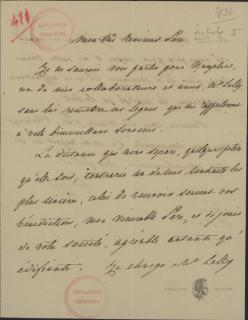 411
1836
5
Mon très Révérend Père
Je ne saurais voir partir pour Nauplie
un de mes collaborateurs et amis Mr Lelly,
sans lui remettre ces lignes qui me rappellent
à votre bienveillant souvenir.
La distance qui nous sépare, quelque petite
qu'elle soit, contrarie un de mes souhaits les
plus sincères, celui de recevoir souvent vos
bénédictions, mon vénérable Père, et de jouir
de votre société, agréable autant qu'
édifiante. Je charge Mr Lelly